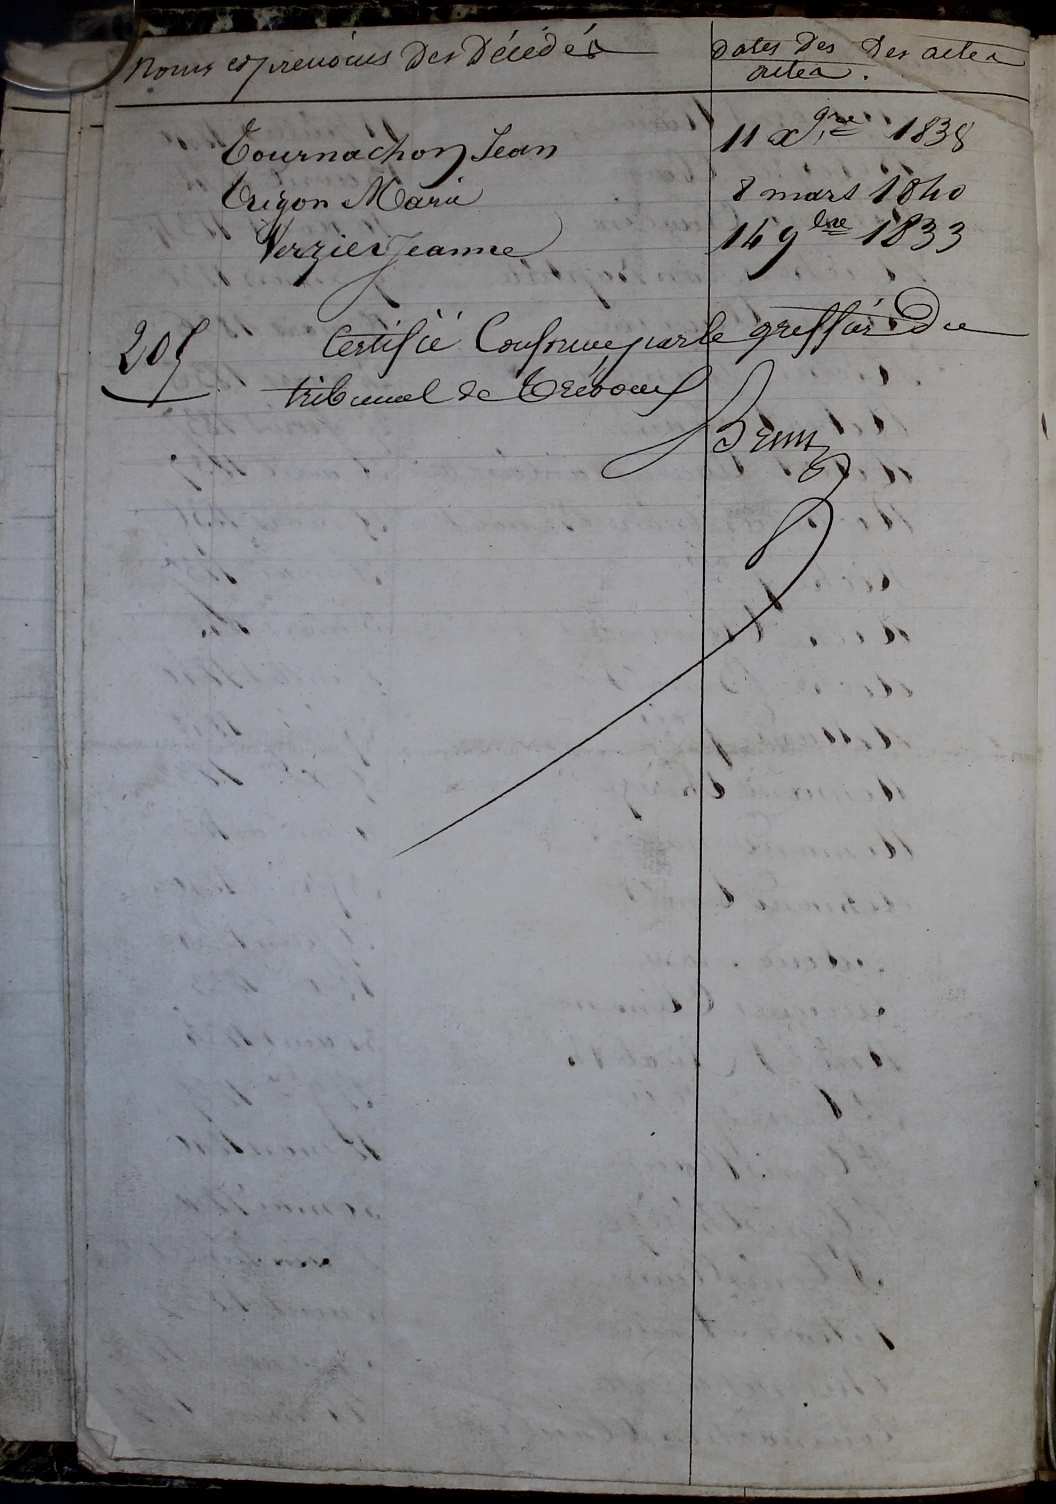 Noms et prénoms des décédés
Dates des des actes
actes.
Tournachon Jean 11 xbre 1838
Trigon Marie 8 mars 1840
Verzier Jeanne 14 9bre 1833
205
Certifié Conforme par le greffier du
tribunal de Trévoux